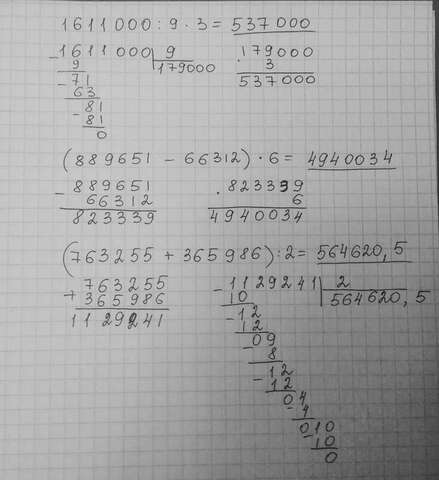 1611000 : 9 · 3 = 537000
- 1611000 | 9
9 179000
- 71
63
- 81
81
0
· 179000
3
537000
(889651 - 66312) · 6 = 4940034
- 889651
66312
823339
· 823339
6
4940034
(763255 + 365986) : 2 = 564620,5
+ 763255
365986
1129241
- 1129241 | 2
10 564620,5
- 12
12
- 09
8
- 12
12
- 04
4
- 010
10
0